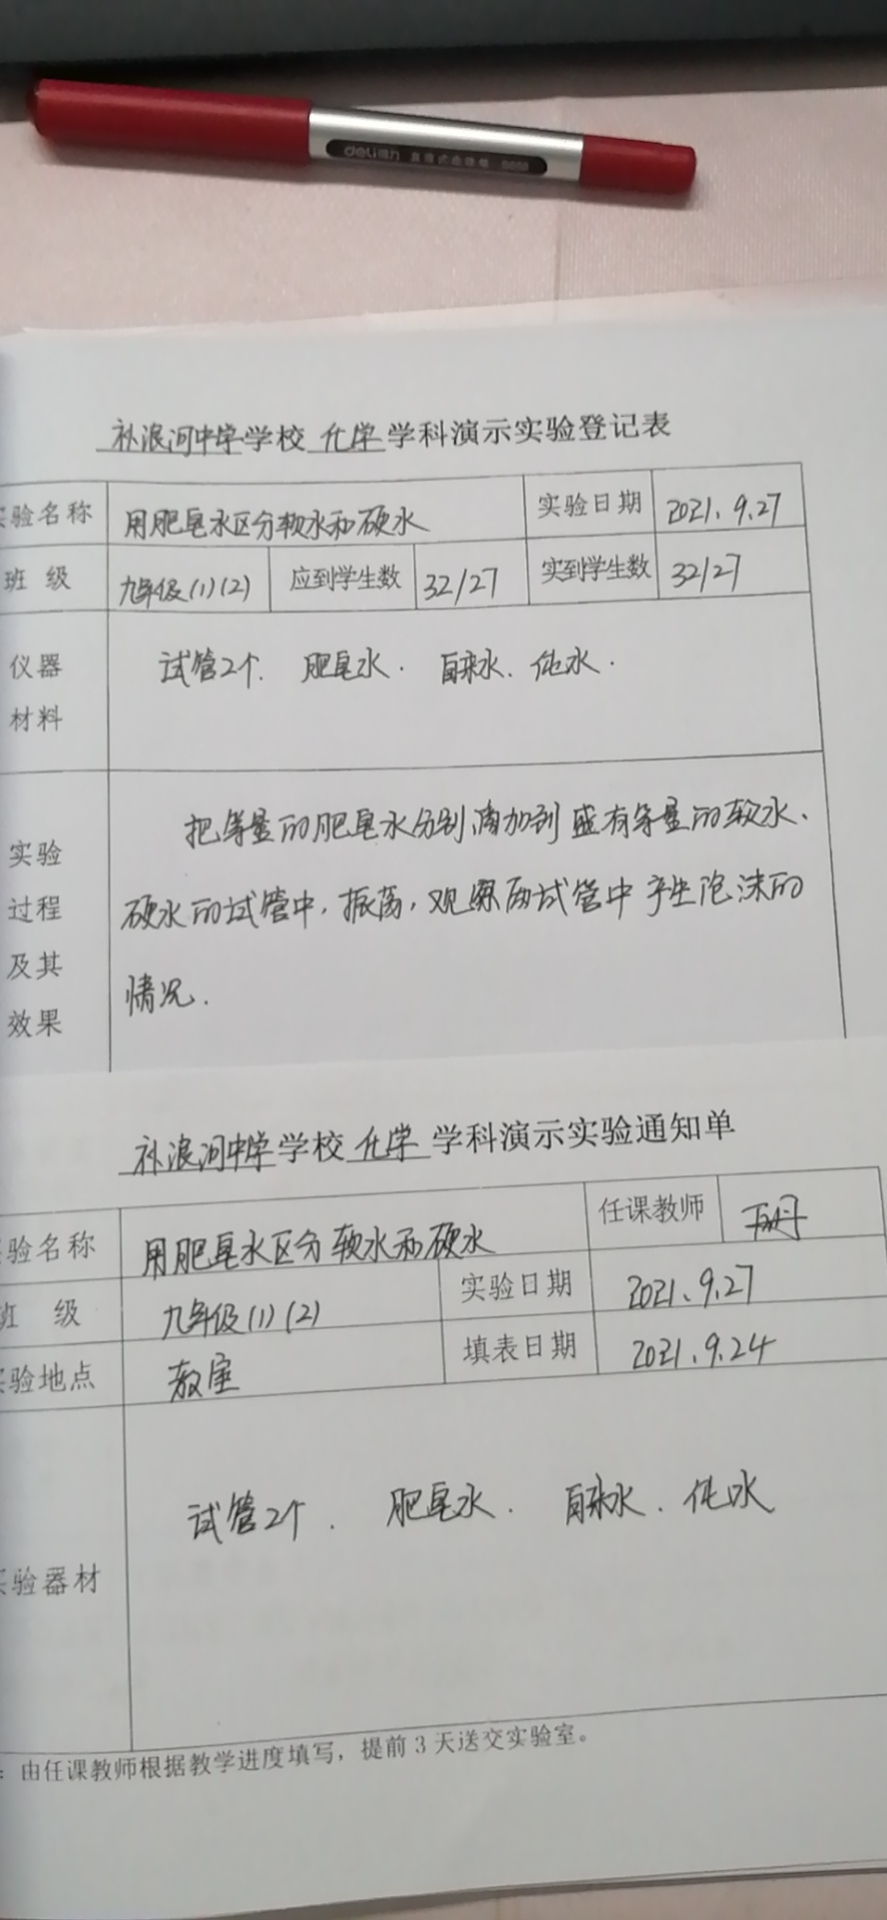 deli得力 直液式走珠笔
补浪河中学学校 化学 学科演示实验登记表
实验名称 用肥皂水区分软水和硬水 实验日期 2021.9.27
班 级 九年级(1)(2) 应到学生数 32/27 实到学生数 32/27
仪器 试管2个. 肥皂水. 自来水. 纯水.
材料
实验 把等量的肥皂水分别滴加到盛有等量的软水、
过程 硬水的试管中,振荡,观察两试管中产生泡沫的
及其 情况.
效果
补浪河中学学校 化学 学科演示实验通知单
验名称 用肥皂水区分软水和硬水 任课教师
班 级 九年级(1)(2) 实验日期 2021.9.27
实验地点 教室 填表日期 2021.9.24
实验器材 试管2个. 肥皂水. 自来水. 纯水
:由任课教师根据教学进度填写,提前3天送交实验室。